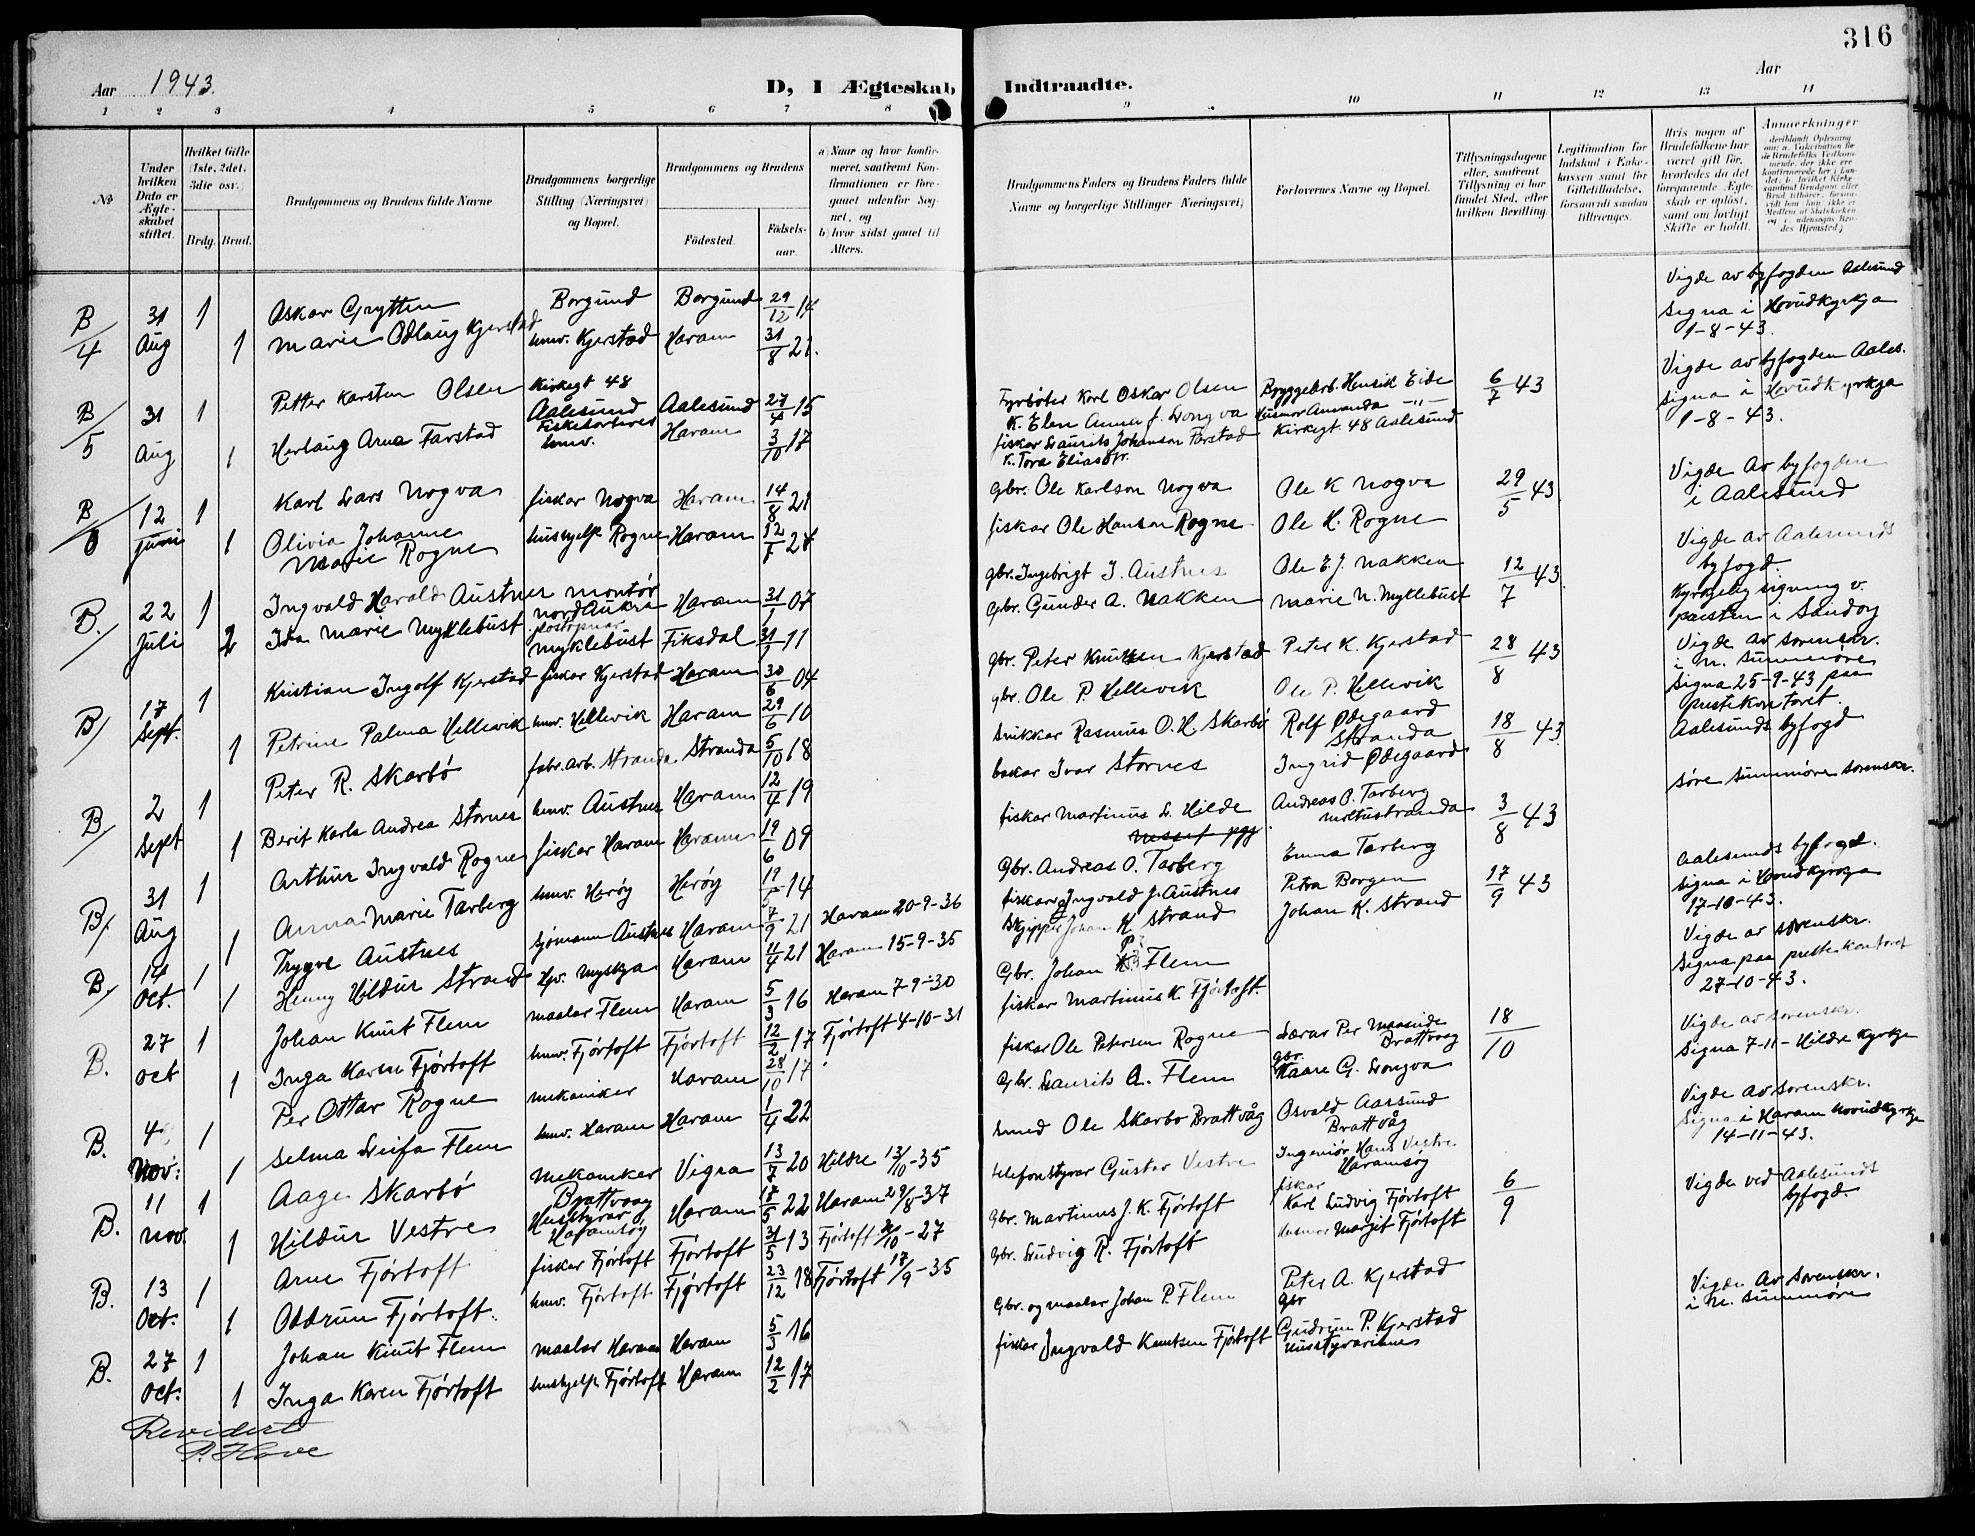 316
Aar 1943.
D, I Ægteskab Indtraadte.
Aar
1 2 3 4 5 6 7 8 9 10 11 12 13 14
No
Under hvilken Dato er Ægteskabet stiftet.
Hvilket Gifte (1ste, 2det, 3die osv.)
Brdg. Brud.
Brudgommens og Brudens fulde Navne
Brudgommens borgerlige Stilling (Næringsvei) og Bopæl.
Brudgommens og Brudens
Fødested.
Fødselsaar.
a) Naar og hvor konfirmeret, saafremt Konfirmationen er foregaaet udenfor Sognet, og
b) hvor sidst gaaet til Alters.
Brudgommens Faders og Brudens Faders fulde Navne og borgerlige Stillinger (Næringsvei)
Forlovernes Navne og Bopæl.
Tillysningsdagene eller, saafremt Tillysning ei har fundet Sted, efter hvilken Bevilling.
Legitimation for Indskud i Enkekassen samt for Giftetilladelse, forsaavidt saadan tiltrænges.
Hvis nogen af Brudefolkene har været gift før, hvorledes da det foregaaende Ægteskab er opløst, samt om lovligt Skifte er holdt.
Anmerkninger
B/4 31 Aug 1 Oskar Grytten Borgund Borgund 29/12 14
1 Marie Odlaug Kjerstad hmv. Kjerstad Haram 31/8 21.
Vigde av byfogden Aalesund
Signa i Hovudkyrkja
1-8-43.
B/5 31 Aug 1 Petter Karsten Olsen Kirkegt 48 Aalesund Aalesund 27/4 15
1 Herlaug Arna Farstad hmv. Haram 3/10 17
Fyrbøter Karl Oskar Olsen Bryggearb. Henrik Eide 6/7 43
K. Elen Anna f. Longva Husmor Amanda -"-
fiskar Laurits Johansen Farstad Kirkegt. 48 Aalesund
K. Tora Eliasdtr.
Vigde av byfogden Aales.
Signa i Hovudkyrkja
1-8-43.
B/6 12 juni 1 Karl Lars Nogva fiskar Nogva Haram 14/8 21
1 Olivia Johanne Marie Rogne hushjelp Rogne Haram
gbr. Ole Karlson Nogva Ole K Nogva 29/5 43
fiskar Ole Hansen Rogne Ole H. Rogne
Vigde av byfogden
i Aalesund
B. 22 Juli 1 Ingvald Harald Austnes montør Nord Aukra Haram 31/1 07
2 Ida Marie Myklebust Myklebust Fiksdal
gbr. Ingebrigt J. Austnes Ole E J. Nakken 12/7 43
gbr. Gunder A. Nakken Marie N. Myklebust
Vigde av Aalesunds
byfogd.
Kyrkjeleg signing v.
presten i Sandøy
B/ 17 Sept. 1 Kristian Ingolf Kjerstad fiskar Kjerstad Haram 30/6 04
1 Petrine Palma Hellevik hmv. Hellevik Haram 29/6 10
gbr. Peter Knutsen Kjerstad Peter K. Kjerstad 28/8 43
gbr. Ole P. Hellevik Ole P. Hellevik
Vigde av sorenskr.
i N. Sunnmøre
Signa 25-9-43 paa
prestekontoret.
B/ 2 Sept 1 Peter R. Skarbø fabr. arb. Stranda Stranda 5/10 18
1 Berit Karla Andrea Stornes hmv. Austnes Haram 12/4 19
Snikkar Rasmus O. H. Skarbø Rolf Ødegaard Stranda 18/8 43
bakar Ivar Stornes Ingrid Ødegaard
Aalesunds byfogd
B/. 31 Aug 1 Arthur Ingvald Rogne fiskar Haram Haram 19/6 09
1 Anna Marie Tarberg hmv. Herøy Herøy
fiskar Martinus L. Hilde Andreas O. Tarberg Moltustranda 3/8 43
Gbr. Andreas O. Tarberg Emma Tarberg
Søre Sunnmøre sorenskr.
B/ 14 Oct. 1 Trygve Austnes sjømann Austnes Haram 7/9 21 Haram 20-9-36
1 Henny Hildur Strand Hgv. Myskja Haram 21 Haram 15-9-35
fiskar Ingvald J. Austnes Petra Borgen 17/9 43
Skipper Johan K Strand Johan K. Strand
Aalesunds byfogd.
Signa i Hovudkyrkja
17-10-43.
B. 27 oct 1 Johan Knut Flem maalar Flem Haram 5/3 16 Haram 7-9-30
1 Inga Karen Fjørtoft hmv. Fjørtoft Fjørtoft 12/2 17 Fjørtoft 4-10-31
Gbr. Johan P. Flem
fiskar Martinus K. Fjørtoft.
Vigde av sorenskr.
Signa paa prestekontoret
27-10-43.
B. 4 Nov: 1 Per Ottar Rogne mekaniker Haram 28/10 17
1 Selma Leifa Flem hmv. Haram Haram 1/4 22
fiskar Ole Petersen Rogne Lærar Per Brattvaag 18/10
Gbr. Laurits A. Flem gbr. Kaare G. Longva
Vigde av sorenskr.
Signa 7-11- Hildre kyrkje
B. 11 nov. 1 Aage Skarbø Mekaniker Brattvaag Vigra 13/7 20 Hildre 13/10-35
1 Hildur Vestre Husstyrar Haramsøy Haram 22 Haram 29/8-37
smed Ole Skarbø Brattvåg Osvald Aarsund Brattvåg
telefonstyrar Gustav Vestre Ingeniør Hans Vestre Haramsøy
Vigde av sorenskr.
Signa i Haram hovudkyrkje
14-11-43.
B. 13 Oct. 1 Arne Fjørtoft fiskar Fjørtoft Fjørtoft 31/5 13 Fjørtoft -27
1 Oddrun Fjørtoft. hmv. Fjørtoft Fjørtoft 23/12 18 Fjørtoft 17/9-35
gbr. Martinus J. K. Fjørtoft fiskar Karl Ludvig Fjørtoft 6/9
gbr. Ludvig R. Fjørtoft Husmor Marjit Fjørtoft
Vigde ved Aalesunds
byfogd.
B. 27 oct. 1 Johan Knut Flem maalar Haram Haram 5/3 16
1 Inga Karen Fjørtoft hushjelp Fjørtoft Haram 12/2 17
Gbr. og maalar Johan P. Flem Peter A. Kjerstad gbr
fiskar Ingvald Knutsen Fjørtoft Gudrun P. Kjerstad
Vigde av sorenskr.
i N. Sunnmøre
Revidert
P. Hove